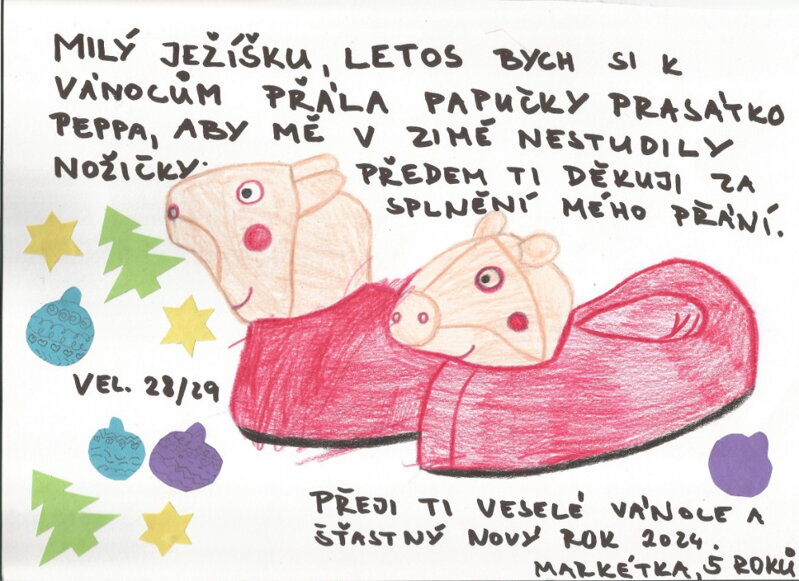 MILÝ JEŽÍŠKU, LETOS BYCH SI K
VÁNOCŮM PŘÁLA PAPUČKY PRASÁTKO
PEPPA, ABY MĚ V ZIMĚ NESTUDILY
NOŽIČKY. PŘEDEM TI DĚKUJI ZA
SPLNĚNÍ MÉHO PŘÁNÍ.
VEL. 28/29
PŘEJI TI VESELÉ VÁNOCE A
ŠŤASTNÝ NOVÝ ROK 2024.
MARKÉTKA, 5 ROKŮ